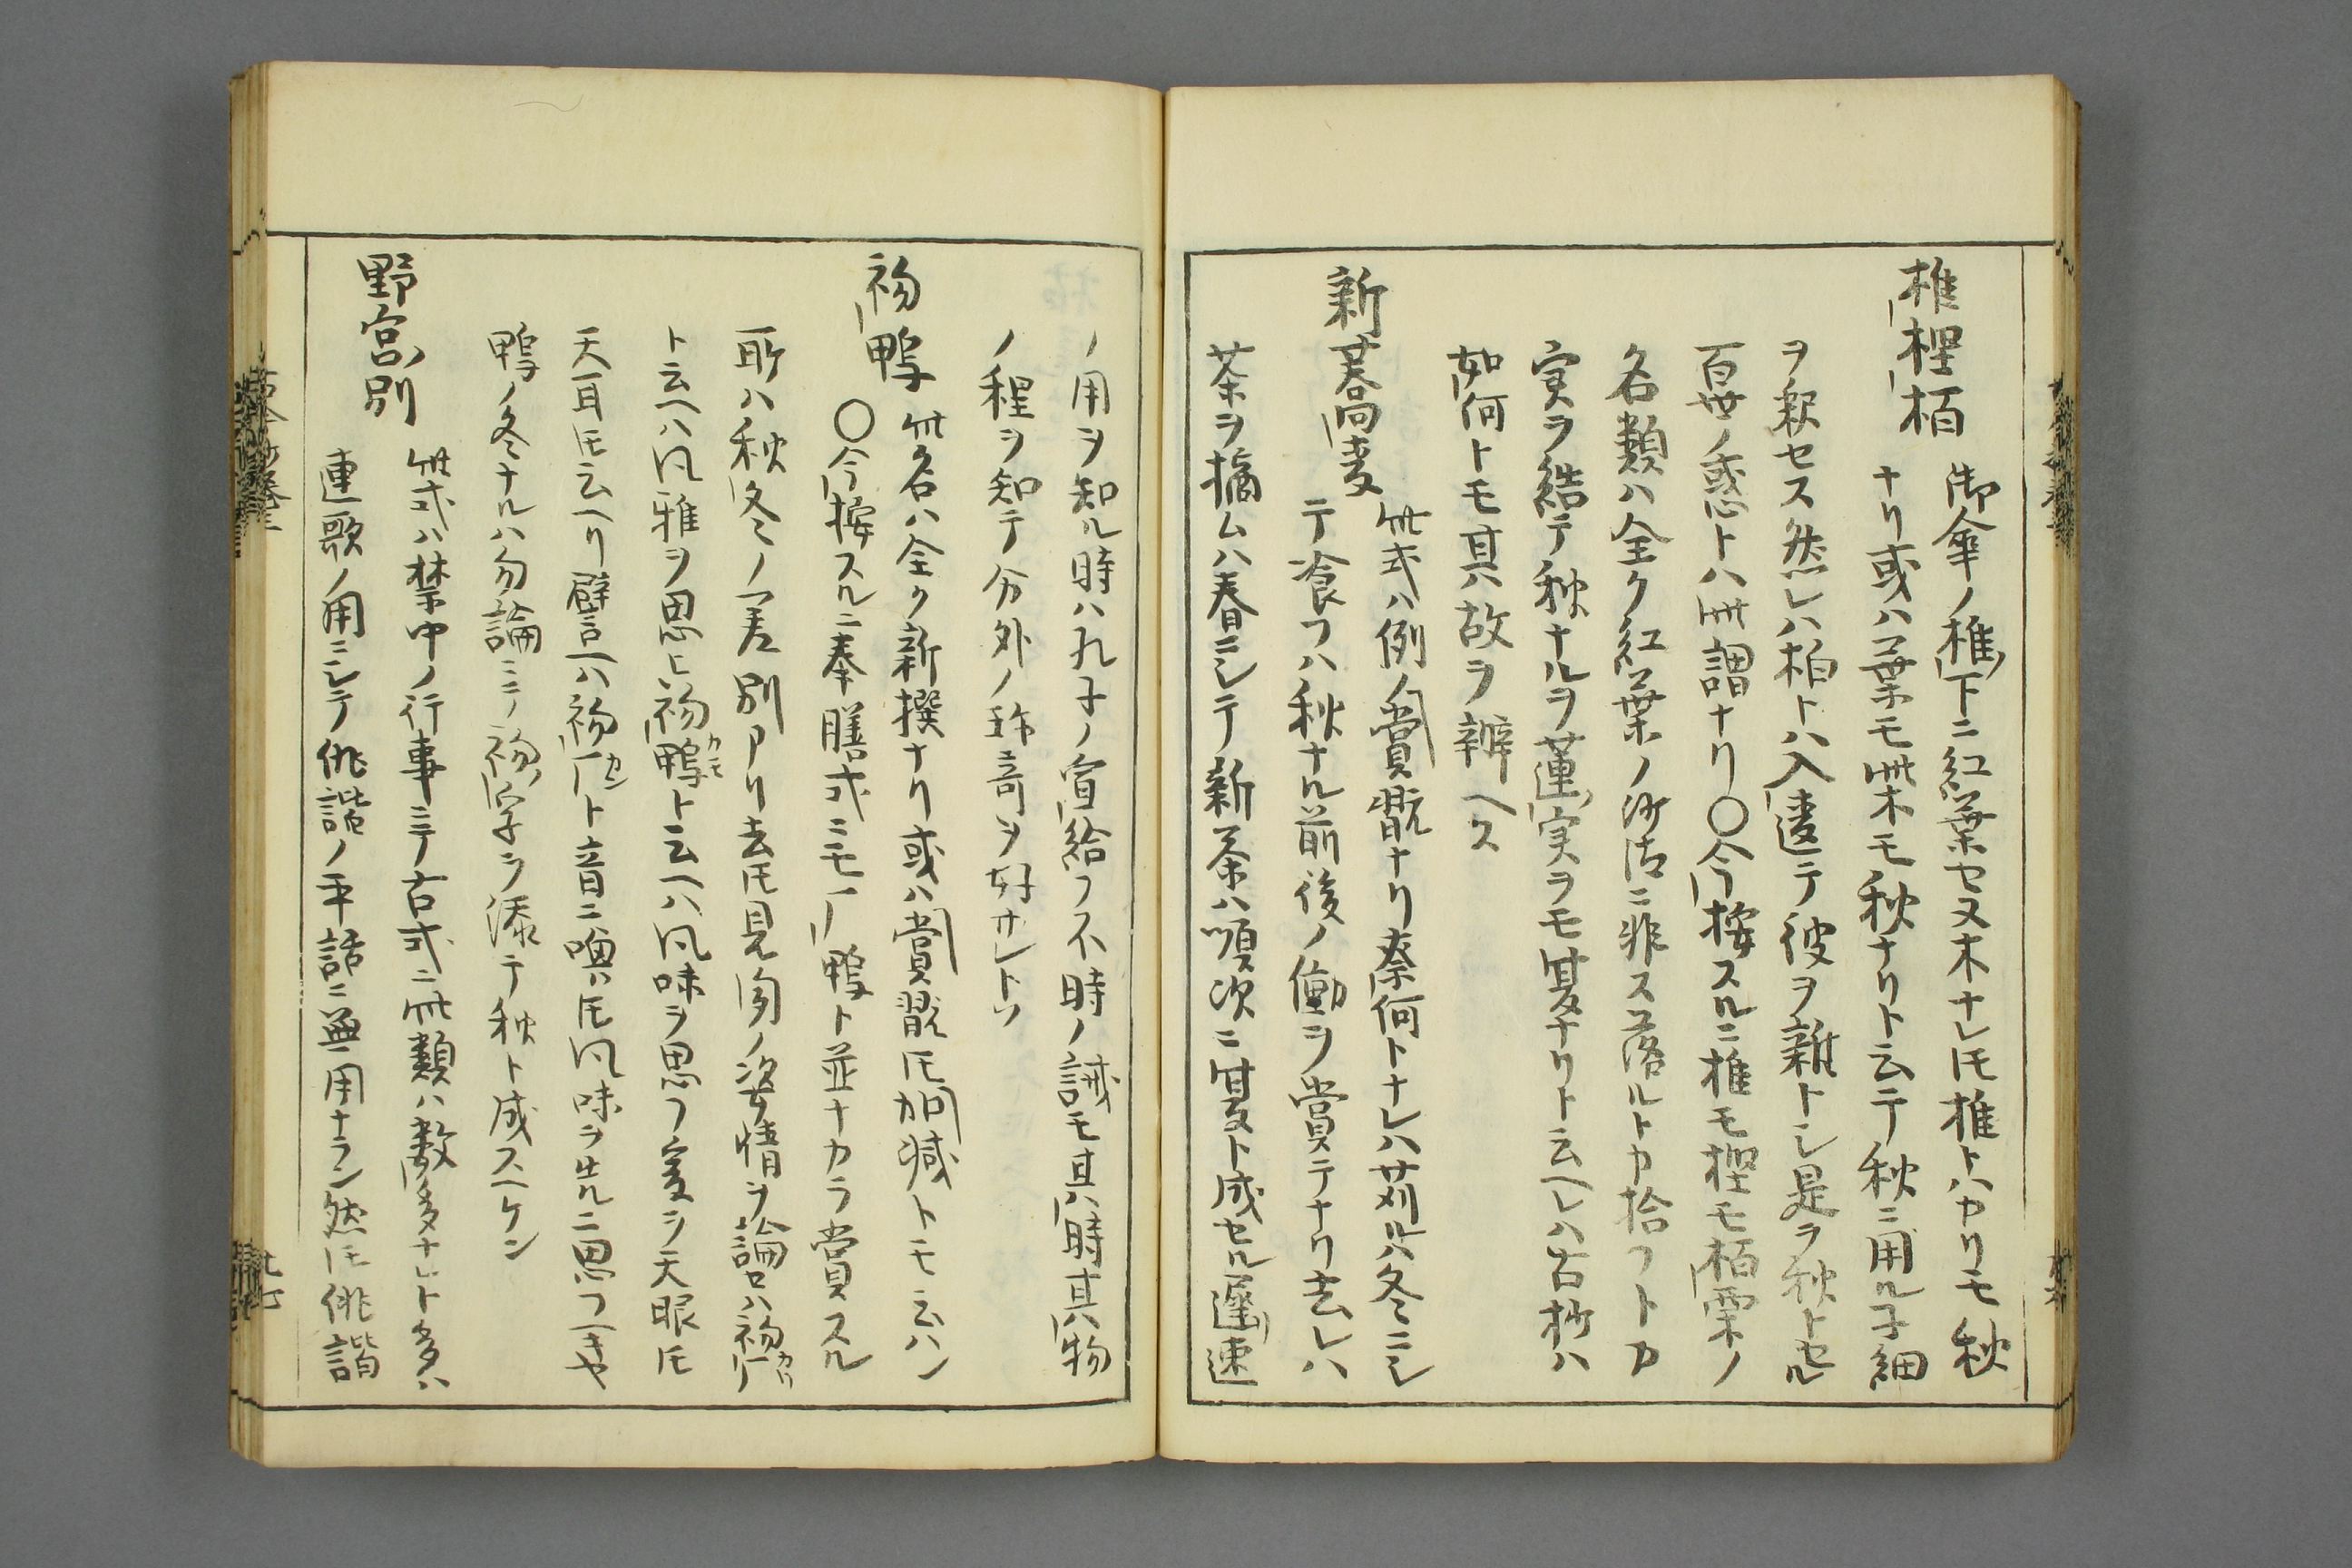 椎樫栢
御傘ノ椎下ニ紅葉セヌ木ナレ𪜈椎トハカリモ秋
ナリ或ハ葉モ此木モ秋ナリト云テ秋ニ用ル子細
ヲ釈セス然レハ栢トハ入違テ彼ヲ雑トシ是ヲ秋トセル
百世ノ惑トハ此謂ナリ〇今按スルニ椎モ樫モ栢栗ノ
名類ハ全ク紅葉ノ沙汰ニ非ス落ルトカ拾フトカ
実ヲ結テ秋ナルヲ蓮実ヲモ夏ナリト云ヘレハ古抄ハ
如何トモ其故ヲ辨ヘス
新蕎麦
此式ハ例ノ賞翫ナリ奈何トナレハ苅ルハ冬ニシ
テ飡フハ秋ナル前後ノ働ヲ賞テナリ去レハ
茶ヲ摘ムハ春ニシテ新茶ハ順次ニ夏ト成セル遅速
ノ用ヲ知ル時ハ孔子ノ宣給フ不時ノ誡モ其時其物
ノ程ヲ知テ分外ノ珎奇ヲ好サレトソ
初鴨
此名ハ全ク新撰ナリ或ハ賞翫𪜈加減トモ云ハン
〇今按スルニ奉膳式ニモ一鴨ト並ナカラ賞スル
所ハ秋冬ノ差別アリ去𪜈見聞ノ姿情ヲ論セハ初カリ
ト云ヘハ風雅ヲ思ヒ初鴨カモト云ヘハ風味ヲ思フ爰ヲ天眼𪜈
天耳𪜈云ヘリ譬ヘハ初カント音ニ喚ハ𪜈風味ヲ先ニ思フヘキヤ
鴨ノ冬ナルハ勿論ニテ初ノ字ヲ添テ秋ト成スヘケン
野宮別
此式ハ禁中ノ行事ニテ古式ニ此類ハ数多ナレト多ハ
連歌ノ用ニシテ俳諧ノ平話ニ無用ナラン然𪜈俳諧